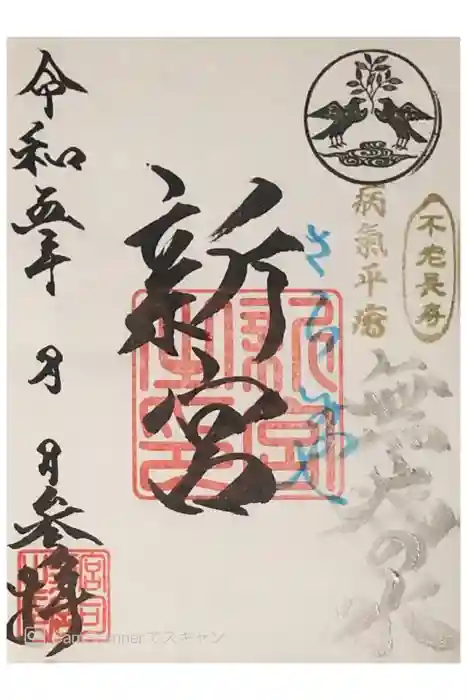 不老長寿
病氣平癒
無老の水
新宮
令和五年 月 日 参拝
CamScannerでスキャン